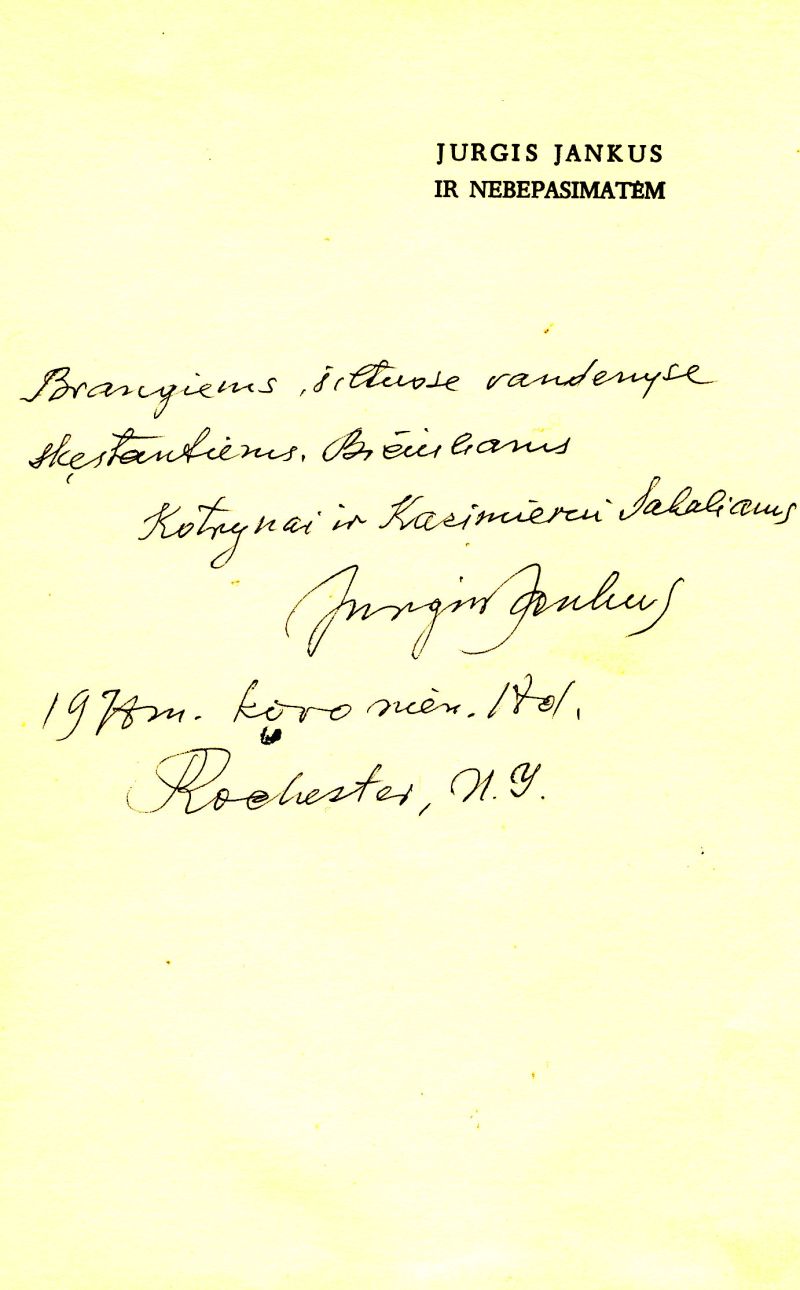 JURGIS JANKUS
IR NEBEPASIMATĖM
Brangiems, šiltuose vandenyse
skęstantiems, Bičiuliams
Kotrynai ir Kazimierui Sakaliams
Jurgis Jankus
1978m. kovo mėn. 17d.
Rochester, N.Y.